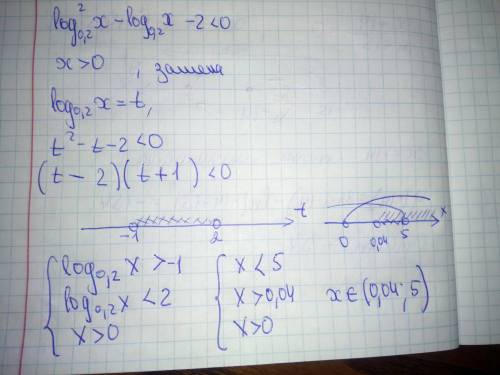 log²₀,₂ x - log₀,₂ x - 2 < 0
x > 0 , замена
log₀,₂ x = t,
t² - t - 2 < 0
(t - 2)(t + 1) < 0
-1 2 t
0 0,04 5 x
{ log₀,₂ x > -1
log₀,₂ x < 2
x > 0
{ x < 5
x > 0,04
x > 0
x ∈ (0,04; 5)